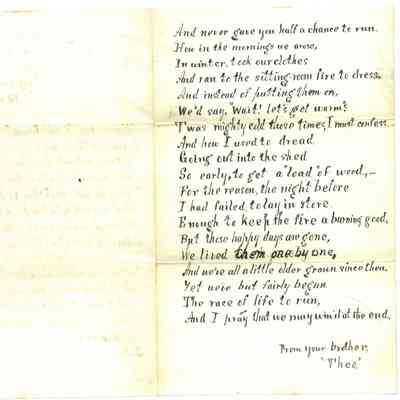 And never gave you half a chance to run.
How in the mornings we arose,
In winter, took our clothes
And ran to the sitting room fire to dress.
And instead of putting them on,
We'd say, "Wait! let's get warm"
T'was mighty cold those times, I must confess.
And how I used to dread
Going out into the shed
So early, to get a "load" of wood,—
For the reason, the night before
I had failed to lay in store
Enough to keep the fire a burning good.
But those happy days are gone,
We lived them one by one,
And we're all a little older grown since then.
Yet we've but fairly begun
The race of life to run,
And I pray that we may win it at the end.
From your brother,
"Theo"